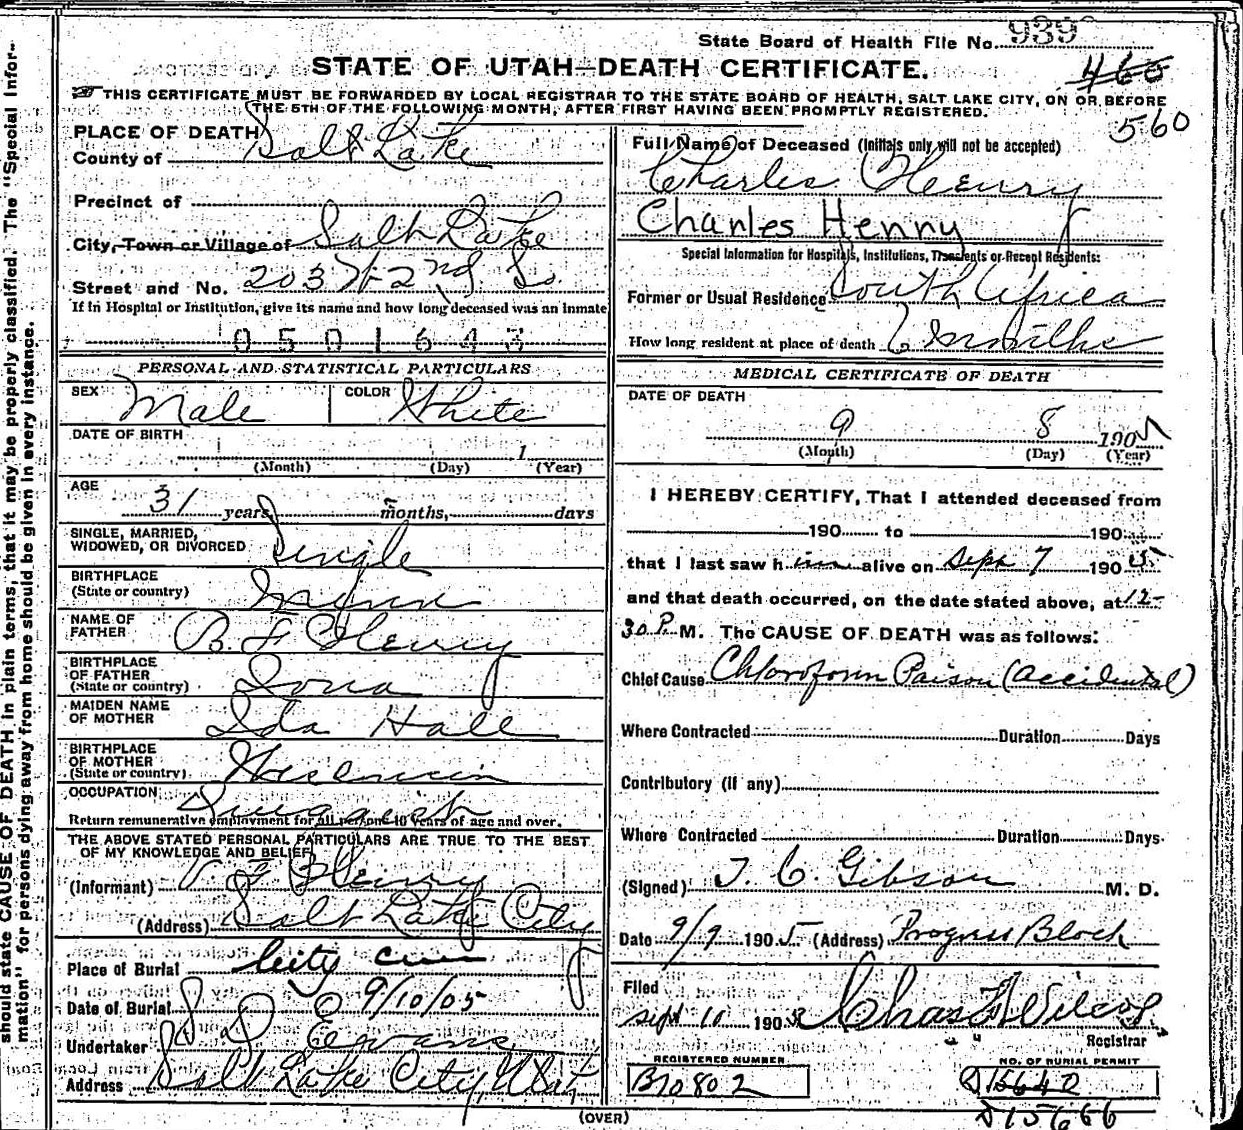 State Board of Health File No. 939
STATE OF UTAH—DEATH CERTIFICATE.
460
THIS CERTIFICATE MUST BE FORWARDED BY LOCAL REGISTRAR TO THE STATE BOARD OF HEALTH, SALT LAKE CITY, ON OR BEFORE
THE 5TH OF THE FOLLOWING MONTH, AFTER FIRST HAVING BEEN PROMPTLY REGISTERED.
560
PLACE OF DEATH
County of Salt Lake
Precinct of
City, Town or Village of Salt Lake
Street and No. 203 2nd So.
If in Hospital or Institution, give its name and how long deceased was an inmate
0501643
PERSONAL AND STATISTICAL PARTICULARS
SEX Male COLOR White
DATE OF BIRTH
1
(Month) (Day) (Year)
AGE
31 years, months, days
SINGLE, MARRIED,
WIDOWED, OR DIVORCED Single
BIRTHPLACE
(State or country) Minn
NAME OF
FATHER B. F. Henry
BIRTHPLACE
OF FATHER
(State or country) Iowa
MAIDEN NAME
OF MOTHER Ida Hall
BIRTHPLACE
OF MOTHER
(State or country) Wisconsin
OCCUPATION Druggist
Return remunerative employment for all persons 10 years of age and over.
THE ABOVE STATED PERSONAL PARTICULARS ARE TRUE TO THE BEST
OF MY KNOWLEDGE AND BELIEF
(Informant) Henry
(Address) Salt Lake City
Place of Burial City Cem
Date of Burial 9/10/05
Undertaker Evans
Address Salt Lake City, Utah
Full Name of Deceased (Initials only will not be accepted)
Charles Henry
Charles Henry
Special Information for Hospitals, Institutions, Transients or Recent Residents:
Former or Usual Residence South Africa
How long resident at place of death 6 months
MEDICAL CERTIFICATE OF DEATH
DATE OF DEATH
9 8 1905
(Month) (Day) (Year)
I HEREBY CERTIFY, That I attended deceased from
190 to 190
that I last saw him alive on Sept 7 1905
and that death occurred, on the date stated above, at 12-
30 P. M. The CAUSE OF DEATH was as follows:
Chief Cause Chloroform Poison (accidental)
Where Contracted Duration Days
Contributory (if any)
Where Contracted Duration Days
(Signed) T. C. Gibson M. D.
Date 9/9 1905 (Address) Progress Block
Filed
Sept 10 1905 Chas F Wilcox
Registrar
REGISTERED NUMBER
B10802
NO. OF BURIAL PERMIT
D15640
D15666
(OVER)
should state CAUSE OF DEATH in plain terms, that it may be properly classified. The "Special Infor-
mation" for persons dying away from home should be given in every instance.